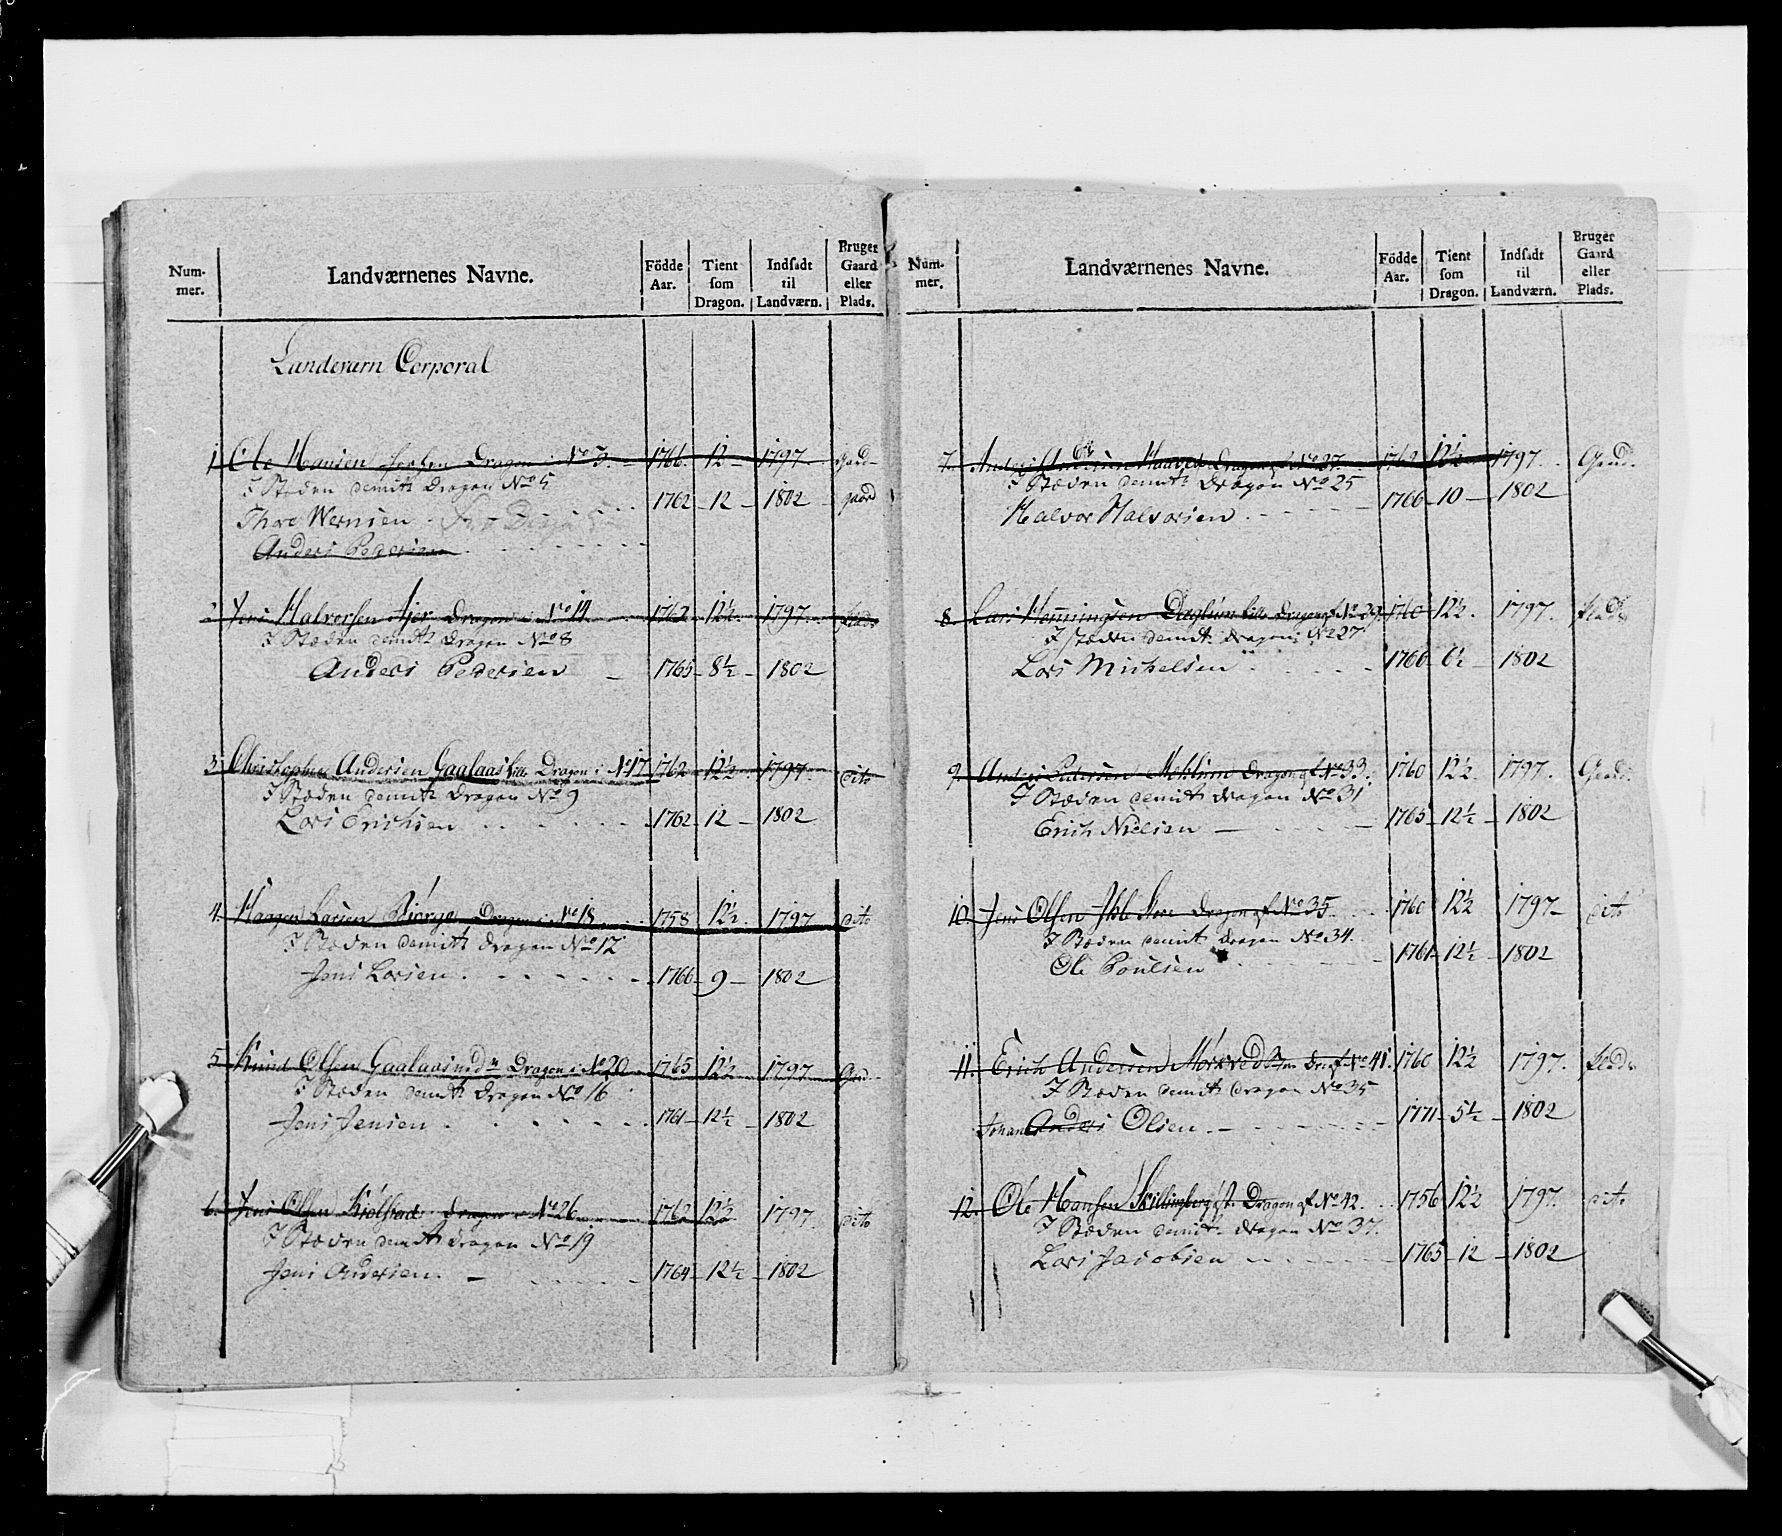 Num-
mer.
Landværnenes Navne.
Födde
Aar.
Tient
som
Dragon.
Indsadt
til
Landværn.
Bruger
Gaard
eller
Plads.
Landeværn Corporal
1 Ole Hansen Dragon i No 3. 1766. 12 1797. Gaard
I Stæden demitt Dragon No 5
Thore Wernsen 1762 12 1802 gaard
Anders Pedersen
2. Jens Halvorsen Dragon i No 14 1762. 12½. 1797. Plads
I Stæden demitt Dragon No 8
Anders Pedersen 1765 8½ 1802
3. Christopher Andersen Gaalaas Dragon i No 17 1762 12½ 1797. dito
I Stæden demitt Dragon No 9
Lars Erichsen 1762 12 1802
4. Haagen Larsen Biørge Dragon i No 18 1758 12½. 1797 dito
I Stæden demitt Dragon No 12
Jens Larsen 1766 9 1802
5. Knud Olsen Gaalaas Dragon i No 20 1765 12½ 1797
I Stæden demitt Dragon No 16
Jens Jensen 1761 12½ 1802
6. Jens Olsen Kiølstad Dragon No 26 1762 12½ 1797. dito
I Stæden demitt Dragon No 19
Jens Andersen 1764 12½ 1802
Num-
mer.
Landværnenes Navne.
Födde
Aar.
Tient
som
Dragon.
Indsadt
til
Landværn.
Bruger
Gaard
eller
Plads.
7. Anders Andersen Dragon No 27. 1762 12½ 1797. Gaard.
I Stæden demitt Dragon No 25
Halvor Halvorsen 1766 10 1802
8. Lars Henningsen Daglum Dragon No 29 1760 12½. 1797. Plads
I Stæden demitt Dragon No 27
Lars Michelsen 1766 6½ 1802
9. Anders Pedersen Dragon No 33. 1760 12½. 1797. Gaard.
I Stæden demitt Dragon No 31
Erich Nielsen 1765 12½ 1802
10. Jens Olsen Dragon No 35 1760 12½ 1797 dito
I Stæden demitt Dragon No 34.
Ole Poulsen 1761 12½ 1802
11. Erich Andersen No 41. 1760 12½ 1797. Plads
I Stæden demitt Dragon No 35
Johan Anders Olsen 1771 5½ 1802
12. Ole Hansen Dragon No 42. 1756 12½ 1797. dito
I Stæden demitt Dragon No 37.
Lars Jacobsen 1765 12 1802